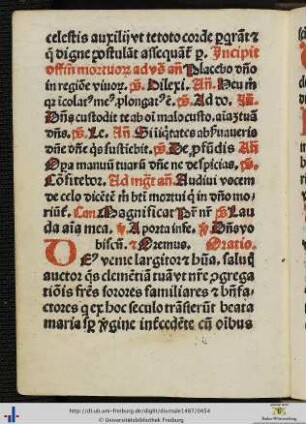 celestis auxilij vt te toto corde ꝑqrāt ⁊
q̄ digne postulāt assequāt̄ ꝑ. Incipit
offm mortuorꝝ ad vs̄ añ Placebo dño
in regiōe viuorꝝ. ps̄. Dilexi. Añ. Heu m̄
qꝛ īcolat⁹ me⁹ ꝓlongat⁹ ē. ps̄. Ad dō. Añ.
Dñs custodit te ab oī malo custo. aīaꝫ tuā
dñs. ps̄. Le. Añ. Si iīq̄tates obsuaueris
dñe dñe q̄s sustiebit. ps̄. De ꝓfūdis Añ
Opa manuū tuarū dñe ne despicias. ps̄.
Cōfitebor. Ad mg̃t añ. Audiui vocem
de celo dicētē m̄ btī mortui q̄ in dño mo
riūt̄. Can Magnificat Pr̄ nr̄ ps̄ Lau
da aīa mea. ℣ A porta inf̄e. ℣ Dñs vo
biscū. ℟ Oremus. Oratio.
DEꝰ venie largitor ⁊ hūa. salutꝭ
auctor q̄s clemētiā tuā vt nr̄e ꝯgrega
tiōis frēs sorores familiares ⁊ bñfa
ctores q̄ ex hoc seculo trāsierūt beata
maria sꝑ v̄gine īt̄cedēte cū oībus
http://dl.ub.uni-freiburg.de/diglit/diurnale1487/0454
© Universitätsbibliothek Freiburg
Baden-Württemberg